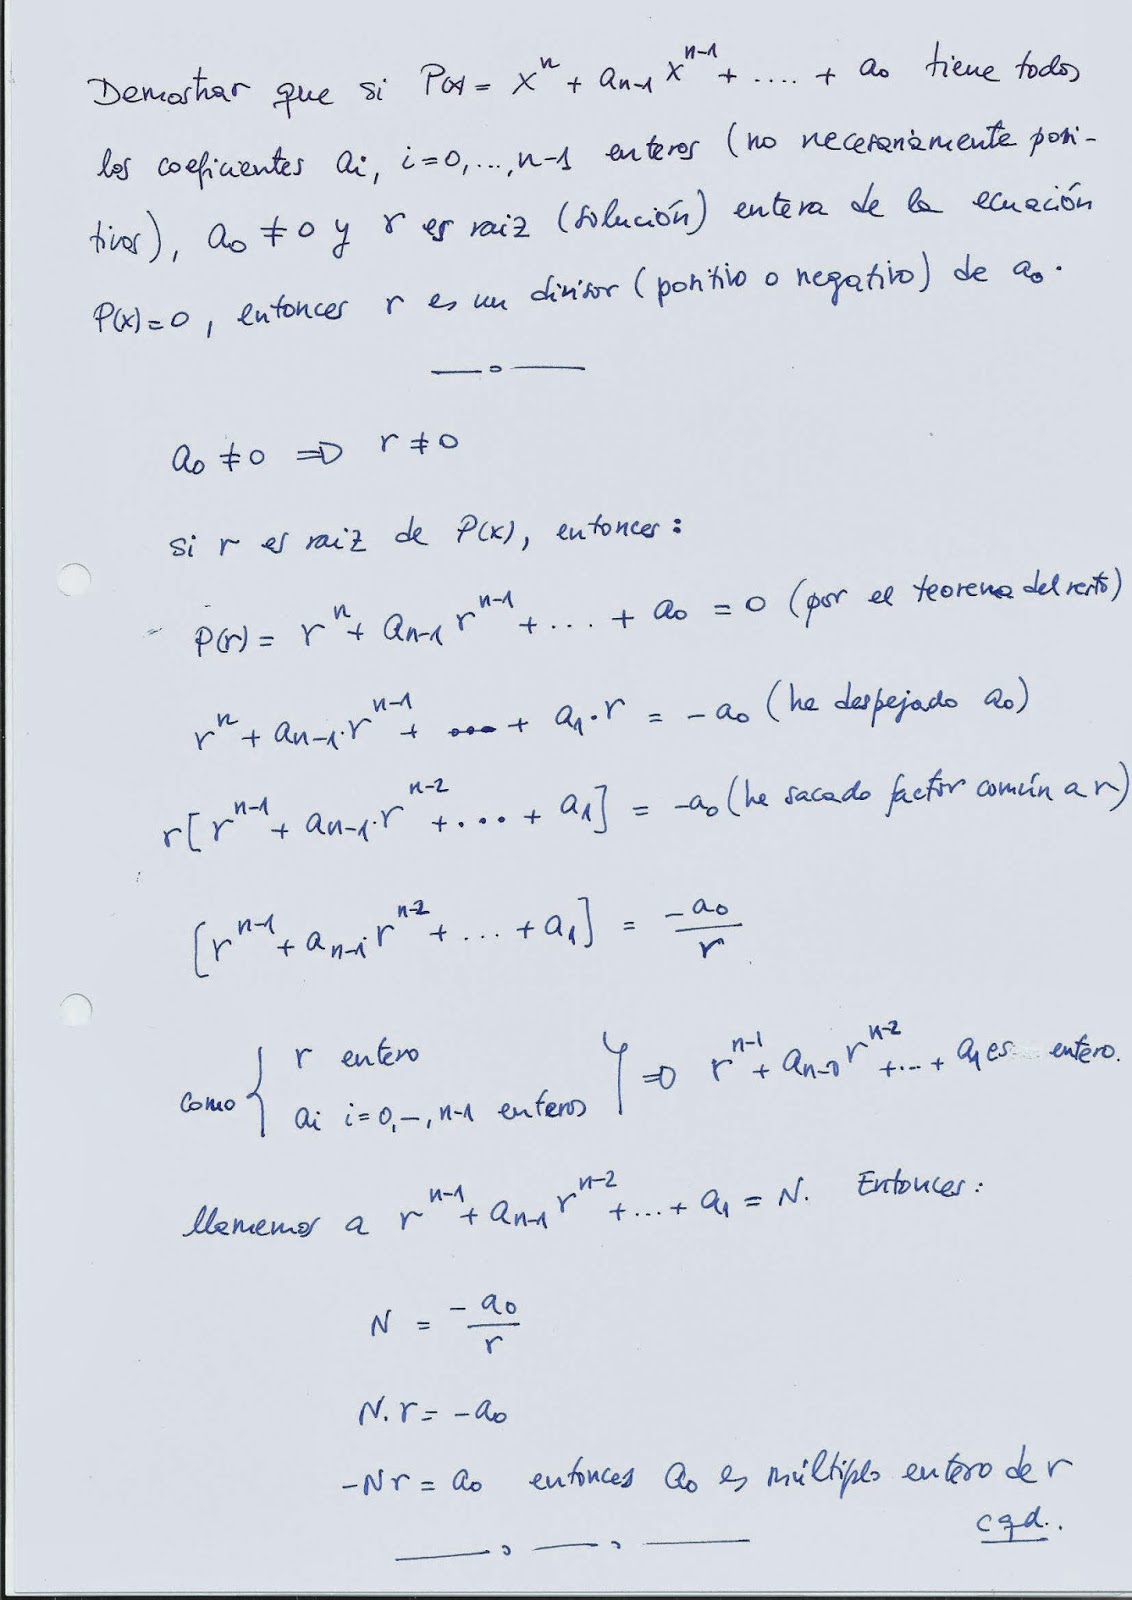 Demostrar que si P(x) = x^n + a_{n-1} x^{n-1} + .... + a_0 tiene todos
los coeficientes a_i, i=0,...,n-1 enteros (no necesariamente posi-
tivos), a_0 ≠ 0 y r es raiz (solución) entera de la ecuación
P(x)=0, entonces r es un divisor (positivo o negativo) de a_0.
a_0 ≠ 0 ⇒ r ≠ 0
si r es raiz de P(x), entonces:
P(r) = r^n + a_{n-1} r^{n-1} + ... + a_0 = 0 (por el teorema del resto)
r^n + a_{n-1}·r^{n-1} + .... + a_1·r = -a_0 (he despejado a_0)
r[r^{n-1} + a_{n-1}·r^{n-2} + ... + a_1] = -a_0 (he sacado factor común a r)
[r^{n-1} + a_{n-1} r^{n-2} + ... + a_1] = -a_0/r
como { r entero
a_i i=0,–,n-1 enteros } ⇒ r^{n-1} + a_{n-1} r^{n-2} + ... + a_1 es entero.
llamemos a r^{n-1} + a_{n-1} r^{n-2} + ... + a_1 = N. Entonces:
N = -a_0/r
N.r = -a_0
-Nr = a_0 entonces a_0 es múltiplo entero de r
cqd..